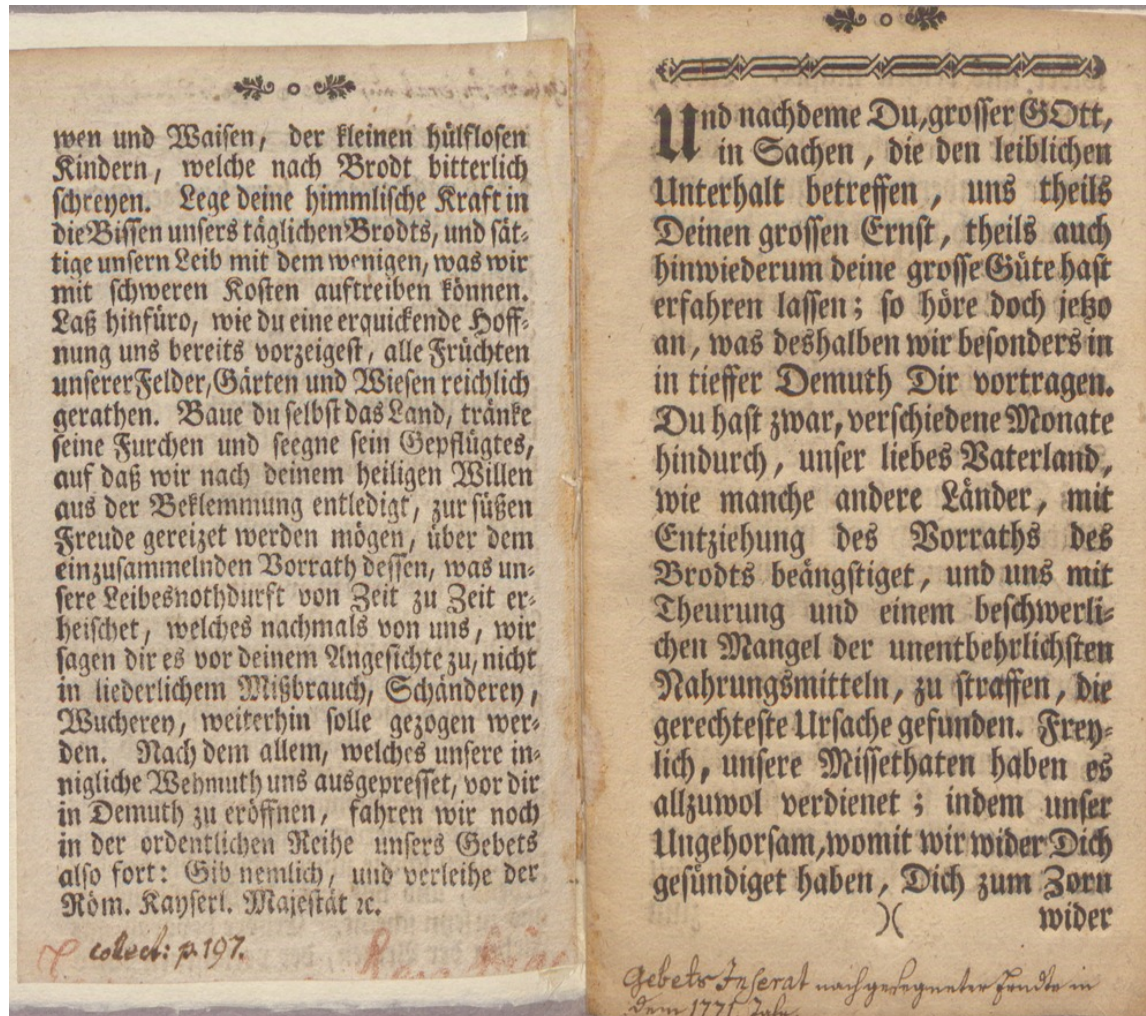 wen und Waisen, der kleinen hülflosen
Kindern, welche nach Brodt bitterlich
schreyen. Lege deine himmlische Kraft in
die Bissen unsers täglichen Brodts, und sät-
tige unsern Leib mit dem wenigen, was wir
mit schweren Kosten auftreiben können.
Laß hinfüro, wie du eine erquickende Hoff-
nung uns bereits vorzeigest, alle Früchten
unserer Felder, Gärten und Wiesen reichlich
gerathen. Baue du selbst das Land, tränke
seine Furchen und seegne sein Gepflügtes,
auf daß wir nach deinem heiligen Willen
aus der Beklemmung entledigt, zur süßen
Freude gereizet werden mögen, über dem
einzusammelnden Vorrath dessen, was un-
sere Leibesnothdurft von Zeit zu Zeit er-
heischet, welches nachmals von uns, wir
sagen dir es vor deinem Angesichte zu, nicht
in liederlichem Mißbrauch, Schänderey,
Wucherey, weiterhin solle gezogen wer-
den. Nach dem allem, welches unsere in-
nigliche Wehmuth uns ausgepresset, vor dir
in Demuth zu eröffnen, fahren wir noch
in der ordentlichen Reihe unsers Gebets
also fort: Gib nemlich, und verleihe der
Röm. Kayserl. Majestät ꝛc.
collect: p. 197.
Und nachdeme Du, grosser GOtt,
in Sachen, die den leiblichen
Unterhalt betreffen, uns theils
Deinen grossen Ernst, theils auch
hinwiederum deine grosse Güte hast
erfahren lassen; so höre doch jetzo
an, was deshalben wir besonders in
in tieffer Demuth Dir vortragen.
Du hast zwar, verschiedene Monate
hindurch, unser liebes Vaterland,
wie manche andere Länder, mit
Entziehung des Vorraths des
Brodts beängstiget, und uns mit
Theurung und einem beschwerli-
chen Mangel der unentbehrlichsten
Nahrungsmitteln, zu straffen, die
gerechteste Ursache gefunden. Frey-
lich, unsere Missethaten haben es
allzuwol verdienet; indem unser
Ungehorsam, womit wir wider Dich
gesündiget haben, Dich zum Zorn
)( wider
Gebets Inserat nach gesegneter Erndte in
dem 1771. Jahr